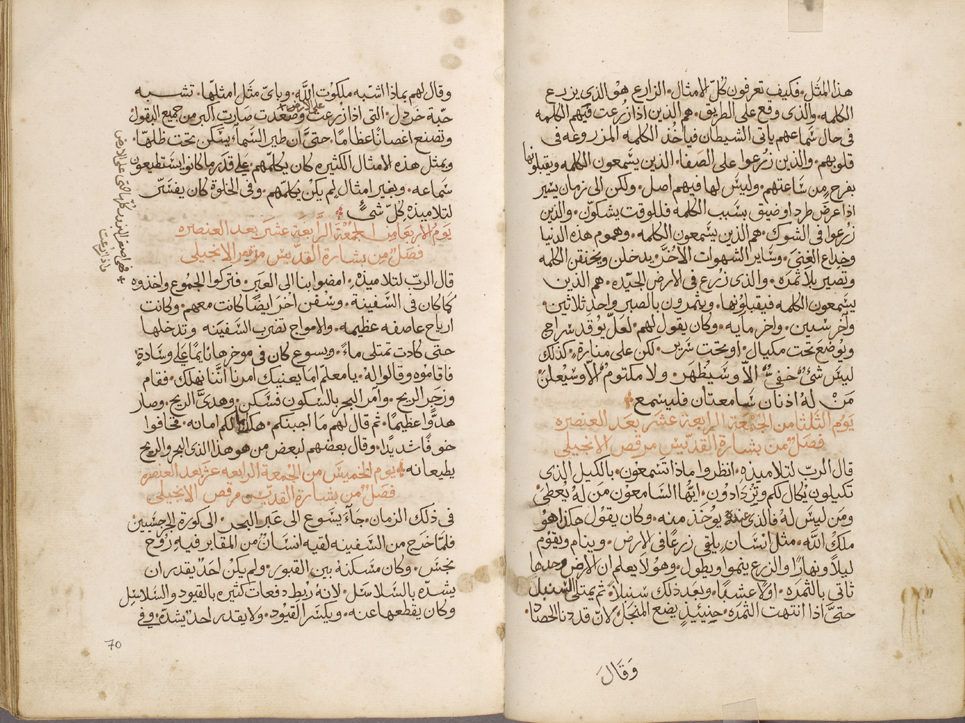 هذا المثل. فكيف تعرفون كل الامثال. الزارع هو الذى يزرع
الكلمه. والذى وقع على الطريق. هم الذين اذا زرعت فيهم الكلمه
فى حال سماعهم ياتى الشيطان فياخذ الكلمه المزروعه فى
قلوبهم. والذين زرعوا على الصفا. الذين يسمعون الكلمه ويقبلونها
بفرح من ساعتهم. وليس لها فيهم اصل. ولكن الى زمان يسير
اذا عرض طرد او ضيق بسبب الكلمه فللوقت يشكون. والذين
زرعوا فى الشوك. هم الذين يسمعون الكلمه. وهموم هذه الدنيا
وخداع الغنى. وساير الشهوات الاخر. يدخلن ويخنقن الكلمه
وتصير بلا ثمره. والذى زرع فى الارض الجيده. هم الذين
يسمعون الكلمه فيقبلونها. ويثمرون بالصبر واحد ثلاثين.
واخر ستين. واخر مايه. وكان يقول لهم. لعل يوقد سراج
ويوضع تحت مكيال. او تحت سرير. لكن على مناره. كذلك
ليس شىء خفى الا وسيظهر. ولا مكتوم الا وسيعلن
من له اذنان سامعتان فليسمع
يوم الثلثا من الجمعة الرابعة عشر بعد العنصره
فصل من بشارة القديس مرقص الانجيلى
قال الرب لتلاميذه. انظروا ماذا تسمعون. بالكيل الذى
تكيلون يكال لكم وتزدادون. ايها السامعون من له يعطى
ومن ليس له فالذى عنده يوخذ منه. وكان يقول هكذا هو
ملك الله. مثل انسان يلقى زرعا فى الارض. وينام ويقوم
ليلا ونهارا والزرع ينموا ويطول. وهو لا يعلم ان الارض وحدها
تاتى بالثمره. اولا عشبا. وبعد ذلك سنبلا. ثم يمتلى السنبل
حتى اذا انتهت الثمره. حينيذ يضع المنجل. لان قد دنا الحصاد.
وقال
وقال لهم بماذا اشبه ملكوت الله. وباى مثل امثلها. تشبه
حبة خردل. التى اذا زرعت على الارض وصعدت صارت اكبر من جميع البقول
وتصنع اغصانا عظاما. حتى ان طير السما يسكن تحت ظلها.
وبمثل هذه الامثال الكثيره كان يكلمهم. على قدر ما كانوا يستطيعون
سماعه. وبغير امثال لم يكن يكلمهم. وفى الخلوة كان يفسر
لتلاميذه كل شىء
يوم الاربعا من الجمعة الرابعة عشر بعد العنصره
فصل من بشارة القديس مرقص الانجيلى
قال الرب لتلاميذه. امضوا بنا الى العبر. فتركوا الجموع واخذوه
كما كان فى السفينة. وسفن اخر ايضا كانت معهم. وكانت
ارياح عاصفه عظيمه. والامواج تضرب السفينه وتدخلها
حتى كادت تمتلى ماء. ويسوع كان فى موخرها نايما على وسادة
فاقاموه وقالوا له. يا معلم اما يعنيك امرنا اننا نهلك. فقام
وزجر الريح. وامر البحر بالسكون فسكن. وهدى الريح. وصار
هدوا عظيما. ثم قال لهم ما اجبنكم. هكذا لكم امانه. فخافوا
خوفا شديدا. وقال بعضهم لبعض من هو هذا الذى البحر والريح
يطيعانه. يوم الخميس من الجمعة الرابعه عشر بعد العنصره
فصل من بشارة القديس مرقص الانجيلى
فى ذلك الزمان. جاء يسوع الى عبر البحر. الى كورة الجرجسيين
فلما خرج من السفينه لقيه انسان من المقابر فيه روح
نجس. وكان مسكنه بين القبور. ولم يكن احد يقدر ان
يشده بالسلاسل. لانه ربط دفعات كثيره بالقيود والسلاسل
وكان يقطعها عنه. ويكسر القيود. ولا يقدر احد يشده. وفى
70